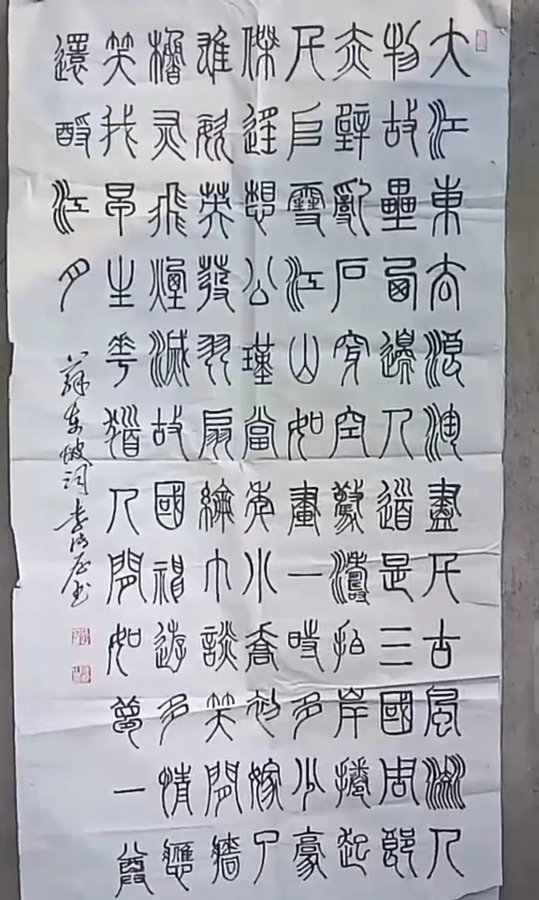 大江東去浪淘盡千古風流人
物故壘西邊人道是三國周郎
赤壁亂石穿空驚濤拍岸捲起
千堆雪江山如畫一時多少豪
傑遙想公瑾當年小喬初嫁了
雄姿英發羽扇綸巾談笑間檣
櫓灰飛煙滅故國神遊多情應
笑我早生華髮人間如夢一尊
還酹江月
蘇東坡詞 李書